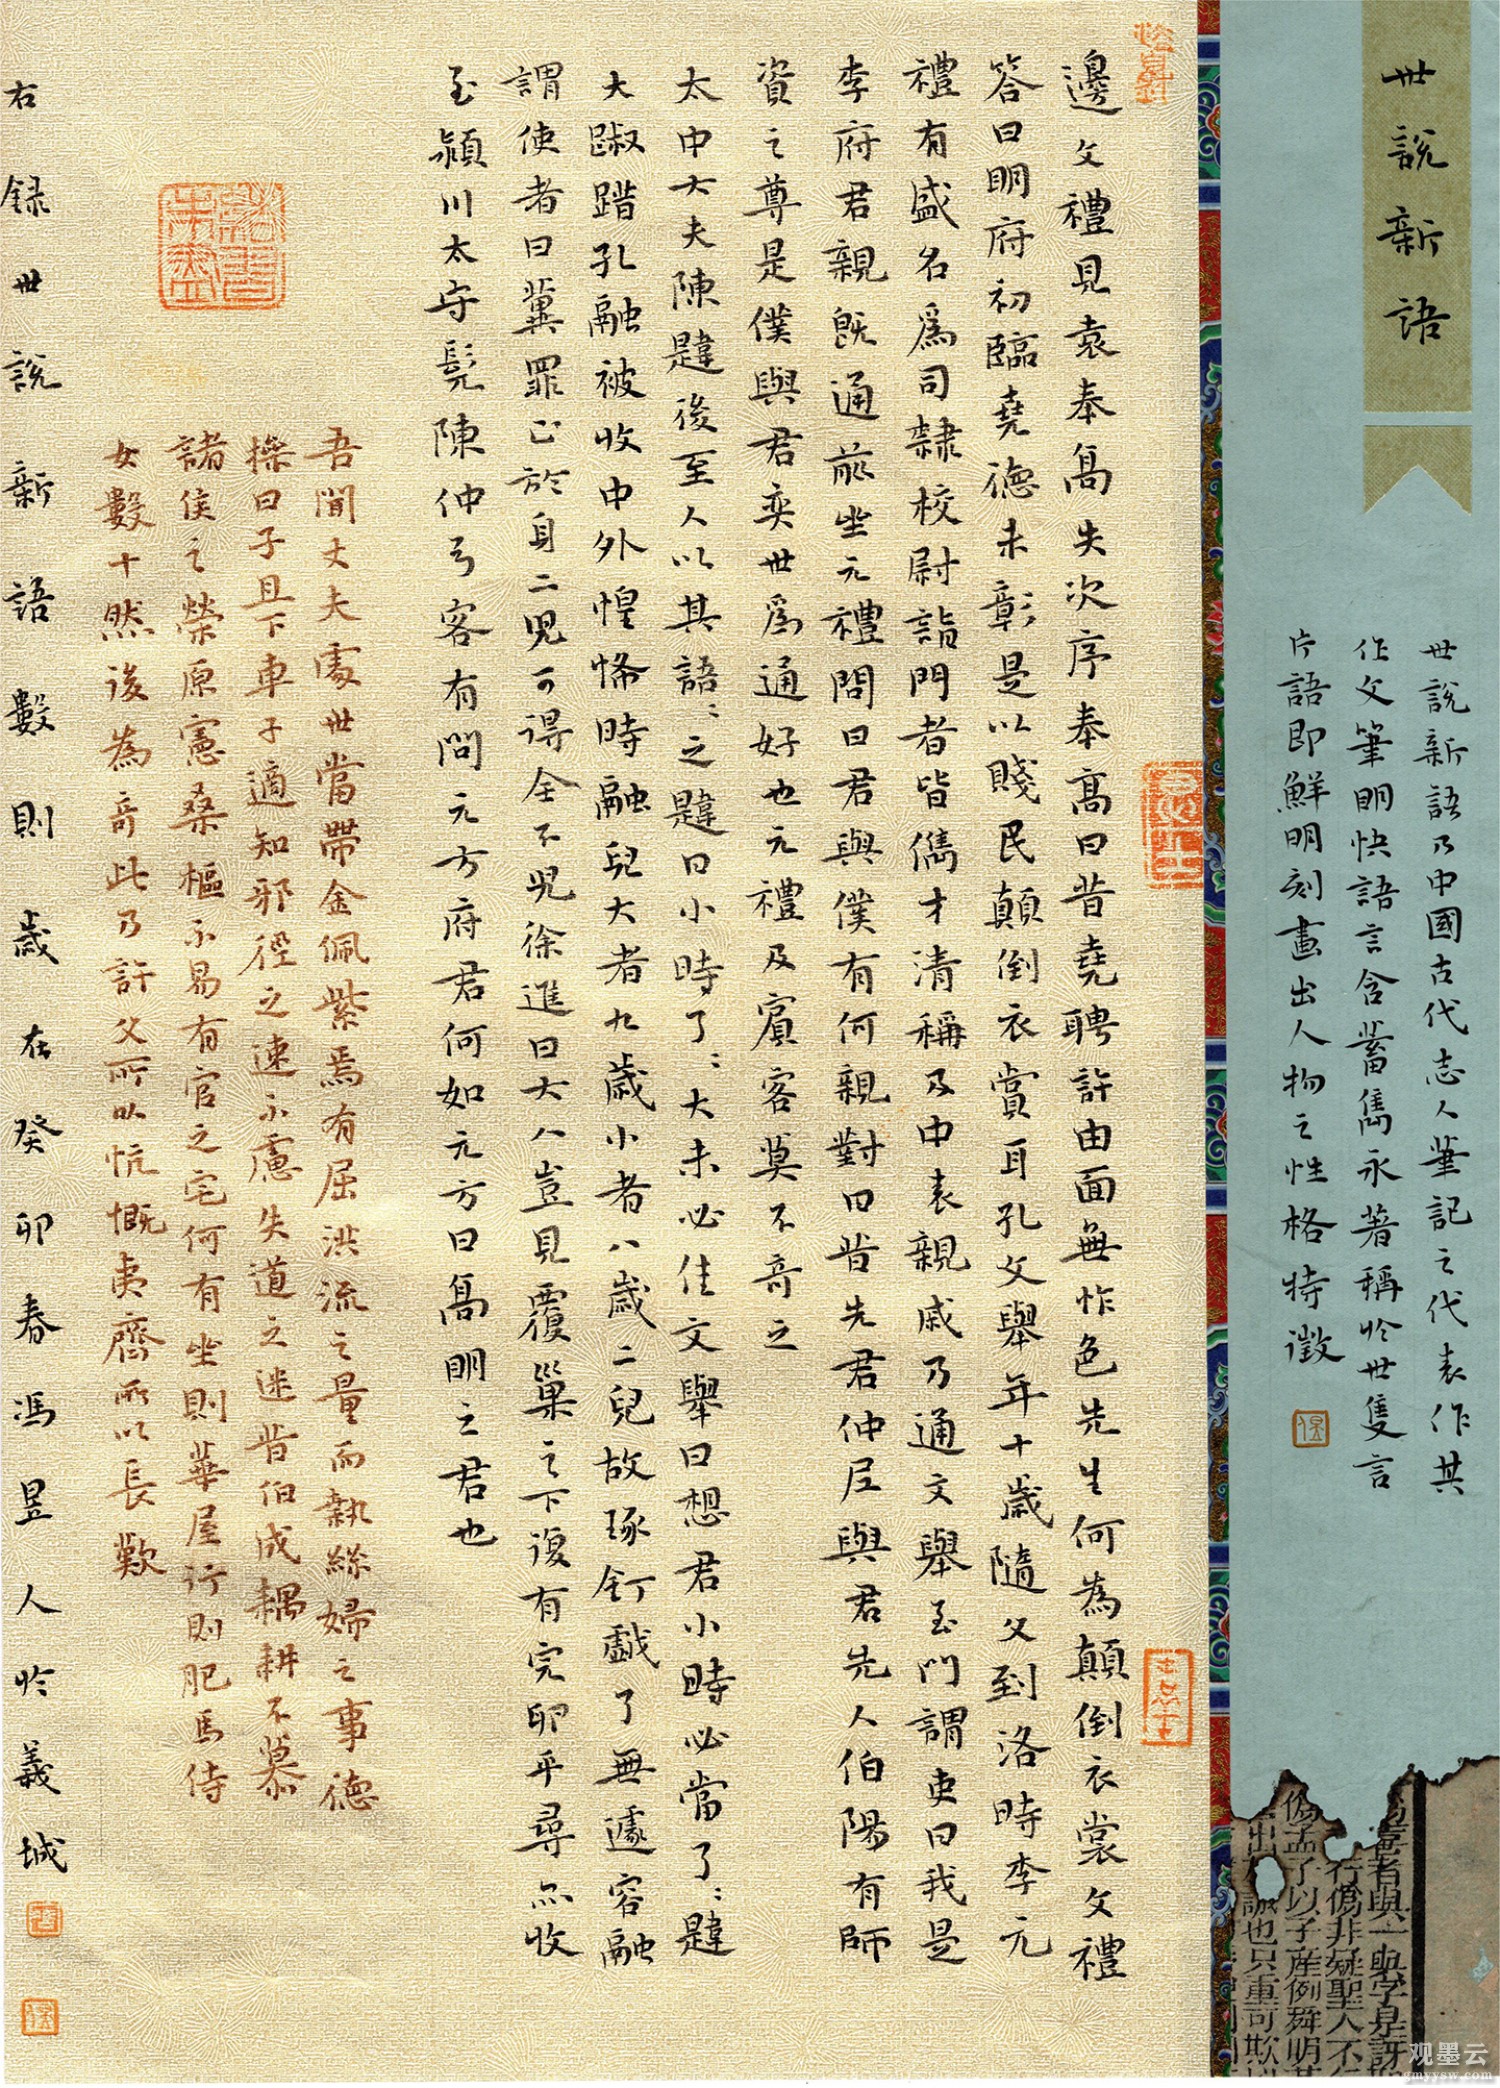 世說新語
世說新語乃中國古代志人筆記之代表作其
作文筆明快語言含蓄雋永著稱於世隻言
片語即鮮明刻畫出人物之性格特徵
者與一與字是訝
行偽非疑聖人不
孟了以子產例舜明
也只重可欺
邊文禮見袁奉高失次序奉高曰昔堯聘許由面無怍色先生何為顛倒衣裳文禮
答曰明府初臨堯德未彰是以賤民顛倒衣賞耳孔文舉年十歲隨父到洛時李元
禮有盛名為司隸校尉詣門者皆儁才清稱及中表親戚乃通文舉至門謂吏曰我是
李府君親既通前坐元禮問曰君與僕有何親對曰昔先君仲尼與君先人伯陽有師
資之尊是僕與君奕世為通好也元禮及賓客莫不奇之
太中大夫陳韙後至人以其語〻之韙曰小時了〻大未必佳文舉曰想君小時必當了〻韙
大踧踖孔融被收中外惶怖時融兒大者九歲小者八歲二兒故琢釘戲了無遽容融
謂使者曰冀罪止於身二兒可得全不兒徐進曰大人豈見覆巢之下復有完卵乎尋亦收
至潁川太守髡陳仲弓客有問元方府君何如元方曰高明之君也
吾聞丈夫處世當帶金佩紫焉有屈洪流之量而執絲婦之事德
操曰子且下車子適知邪徑之速不慮失道之迷昔伯成耦耕不慕
諸侯之榮原憲桑樞不易有官之宅何有坐則華屋行則肥馬侍
女數十然後為奇此乃許父所以忼慨夷齊所以長歎
右録世說新語數則歲在癸卯春馮昱人於義城
观墨云
gmyysw.com